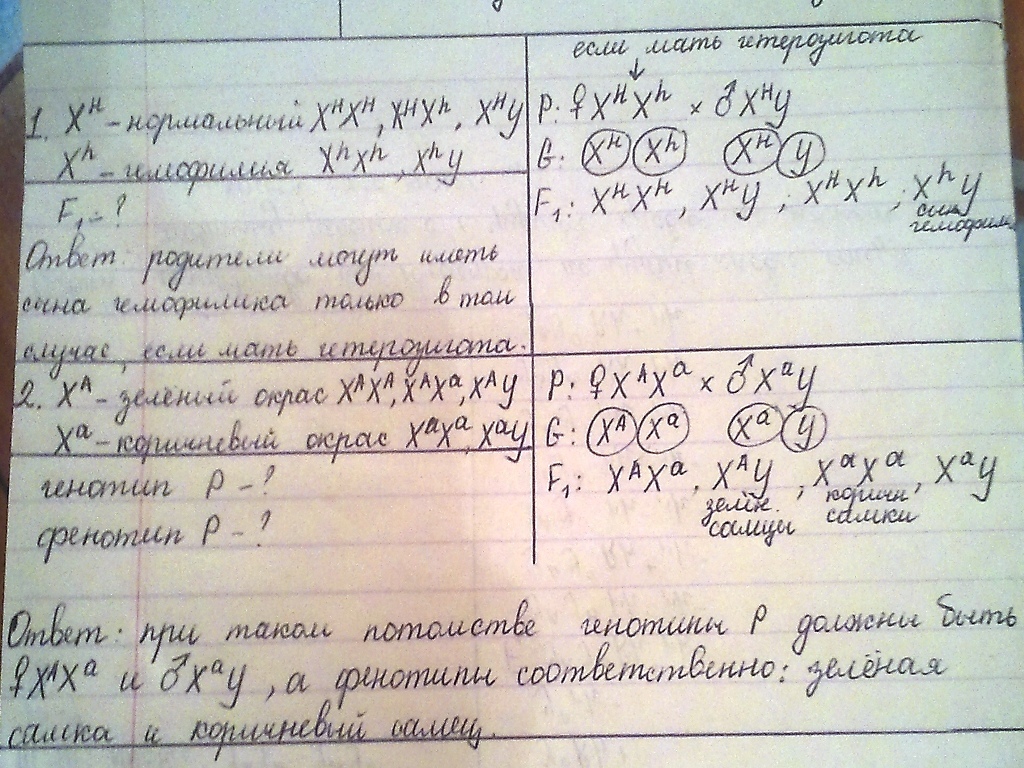 1. Xᴴ – нормальный XᴴXᴴ, XᴴXʰ, XᴴY
Xʰ – гемофилия XʰXʰ, XʰY
F₁ – ?
Ответ: родители могут иметь
сына гемофилика только в том
случае, если мать гетерозигота.
если мать гетерозигота
↓
P: ♀XᴴXʰ × ♂XᴴY
G: Xᴴ Xʰ Xᴴ Y
F₁: XᴴXᴴ, XᴴY; XᴴXʰ; XʰY
сын
гемофилик
2. Xᴬ – зелёный окрас XᴬXᴬ, XᴬXᵃ, XᴬY
Xᵃ – коричневый окрас XᵃXᵃ, XᵃY
генотип P – ?
фенотип P – ?
P: ♀XᴬXᵃ × ♂XᵃY
G: Xᴬ Xᵃ Xᵃ Y
F₁: XᴬXᵃ, XᴬY, XᵃXᵃ, XᵃY
зелён. коричн.
самцы самки
Ответ: при таком потомстве генотипы P должны быть
♀XᴬXᵃ и ♂XᵃY, а фенотипы соответственно: зелёная
самка и коричневый самец.